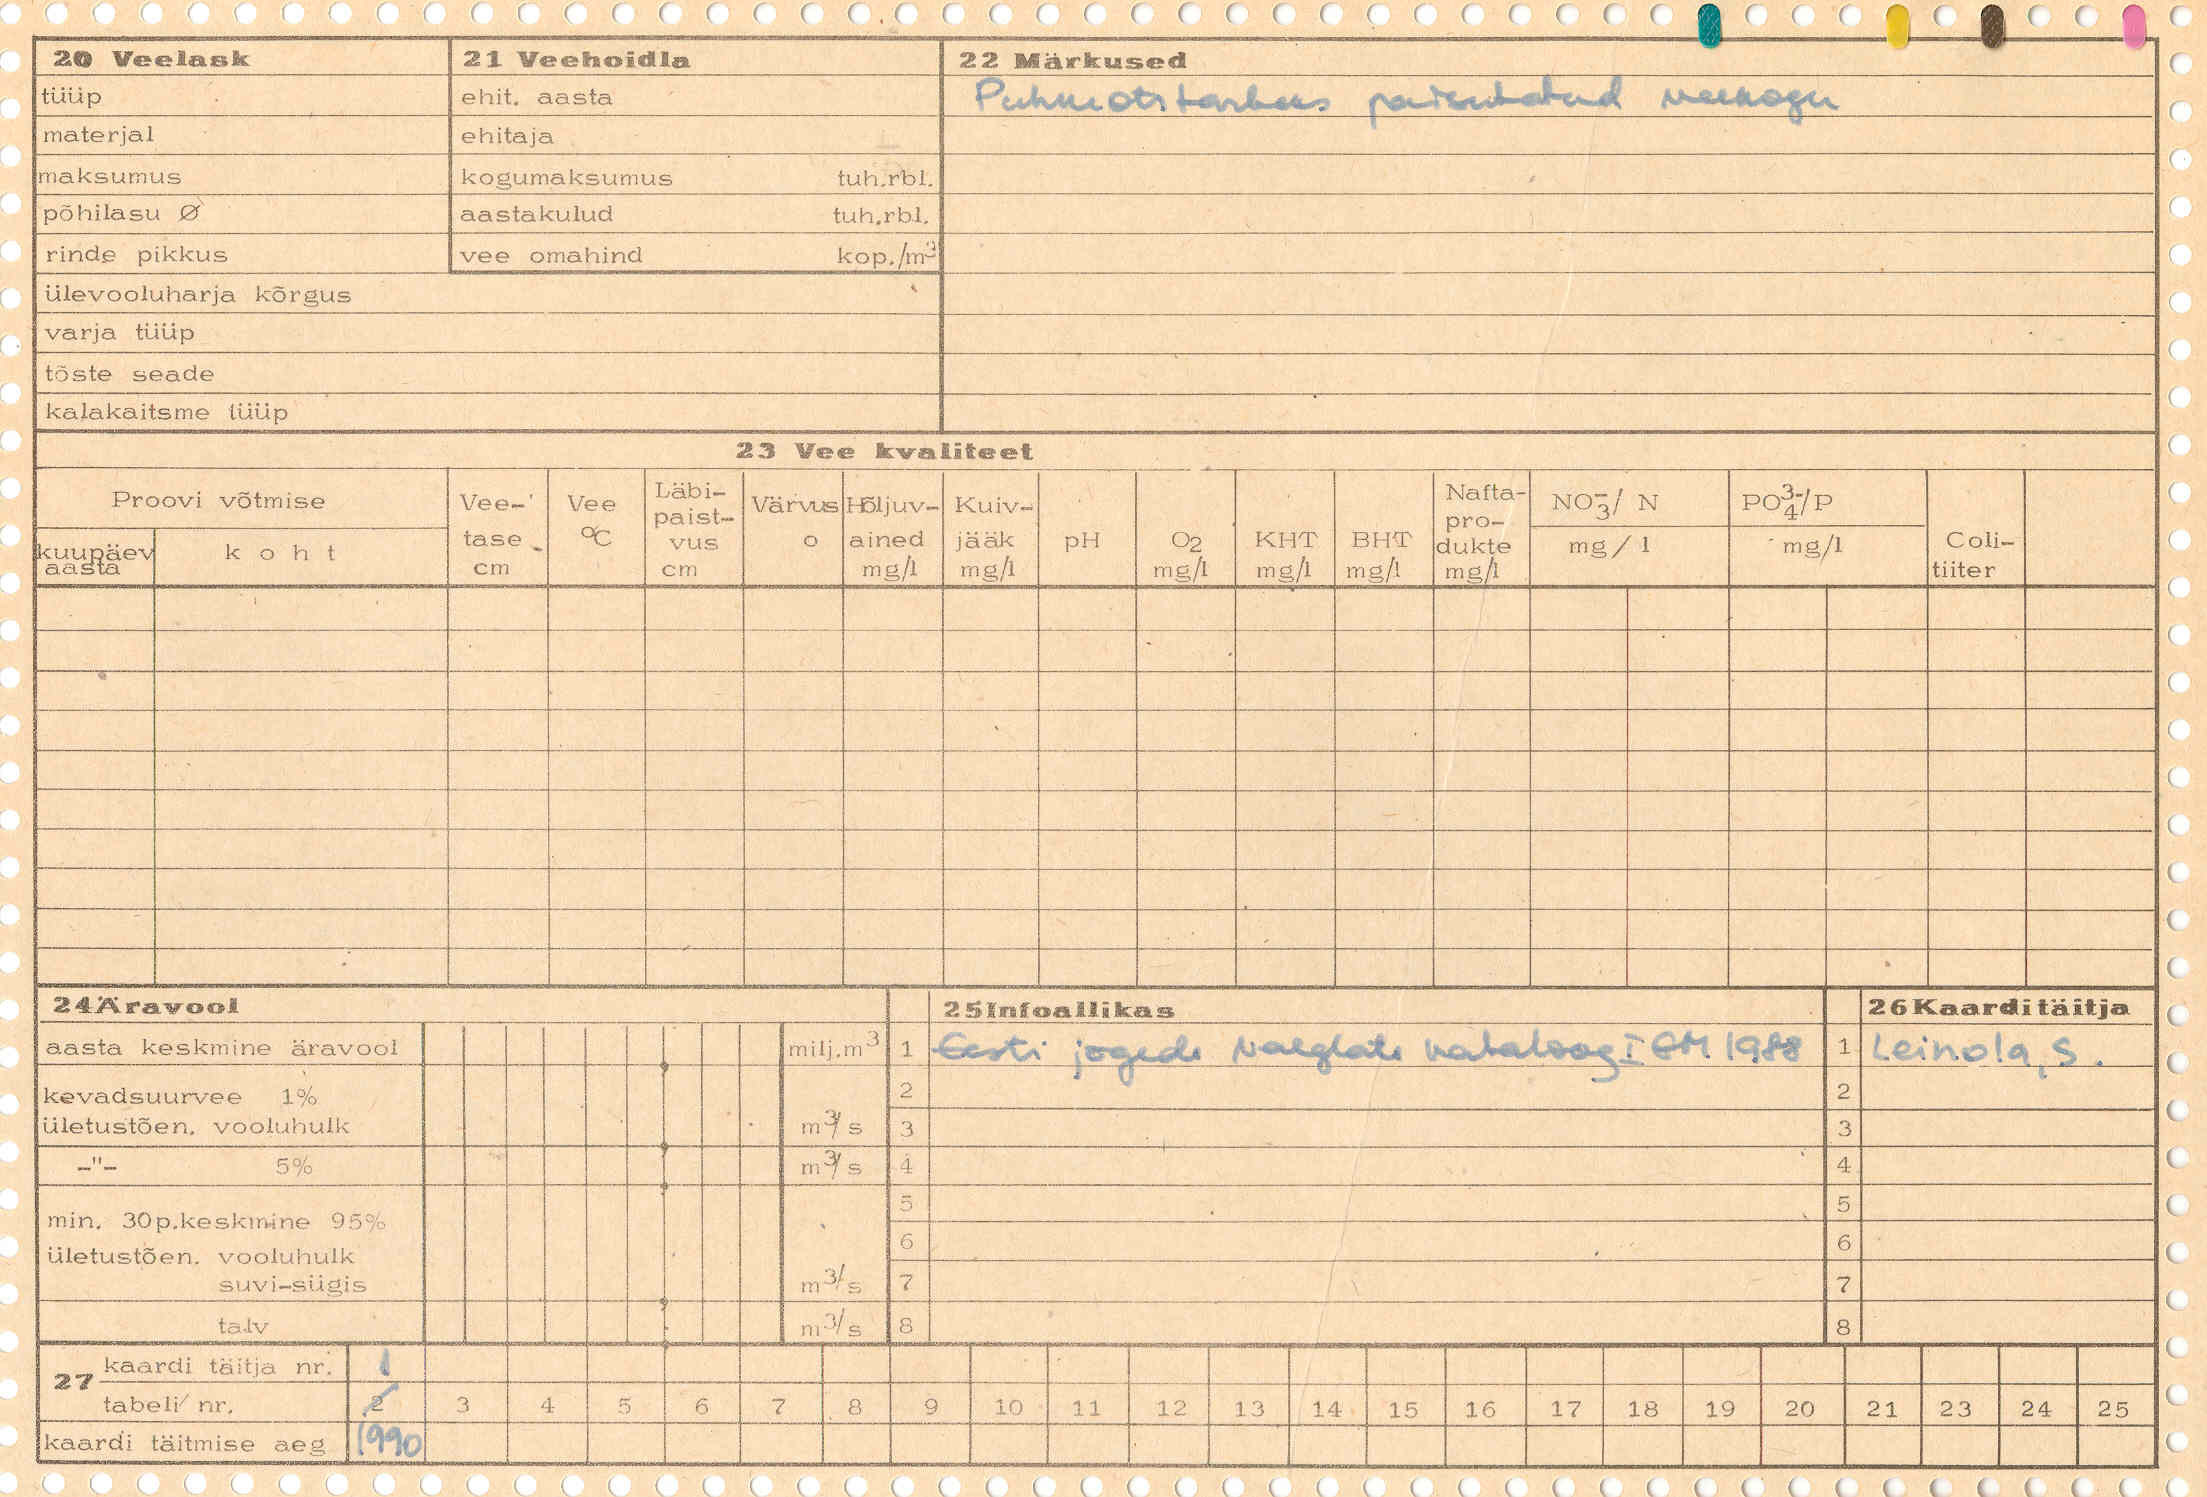 20 Veelask
tüüp
materjal
maksumus
põhilasu Ø
rinde pikkus
ülevooluharja kõrgus
varja tüüp
tõste seade
kalakaitsme tüüp
21 Veehoidla
ehit. aasta
ehitaja
kogumaksumus tuh.rbl.
aastakulud tuh.rbl.
vee omahind kop./m³
22 Märkused
paisutatud veekogu
23 Vee kvaliteet
Proovi võtmise
kuupäev
aasta
koht
Vee-
tase
cm
Vee
°C
Läbi-
paist-
vus
cm
Värvus
o
Hõljuv-
ained
mg/l
Kuiv-
jääk
mg/l
pH
O2
mg/l
KHT
mg/l
BHT
mg/l
Nafta-
pro-
dukte
mg/l
NO3-/ N
mg/l
PO4 3-/P
mg/l
Coli-
tiiter
24 Äravool
aasta keskmine äravool milj.m³
kevadsuurvee 1%
ületustõen. vooluhulk m³/s
-"- 5% m³/s
min. 30p.keskmine 95%
ületustõen. vooluhulk
suvi-sügis m³/s
talv m³/s
25 Infoallikas
1 Eesti jogede kataloog I 1988
2
3
4
5
6
7
8
26 Kaarditäitja
1 Leinola, S.
2
3
4
5
6
7
8
27 kaardi täitja nr. 1
tabeli nr. 2 3 4 5 6 7 8 9 10 11 12 13 14 15 16 17 18 19 20 21 23 24 25
kaardi täitmise aeg 1990